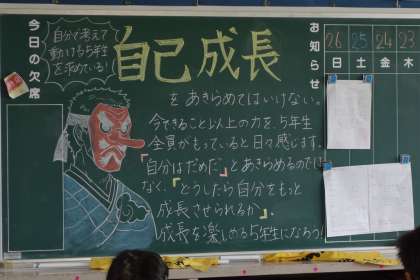 今日の欠席
自分で考えて
動ける5年生
を求めている!
自己成長
をあきらめてはいけない。
今できること以上の力を、5年生
全員がもっていると日々感じます。
「自分はだめだ」とあきらめるのでは
なく、「どうしたら自分をもっと
成長させられるか」。
成長を楽しめる5年生になろう!
お知らせ
26 25 24 23
日 土 金 木